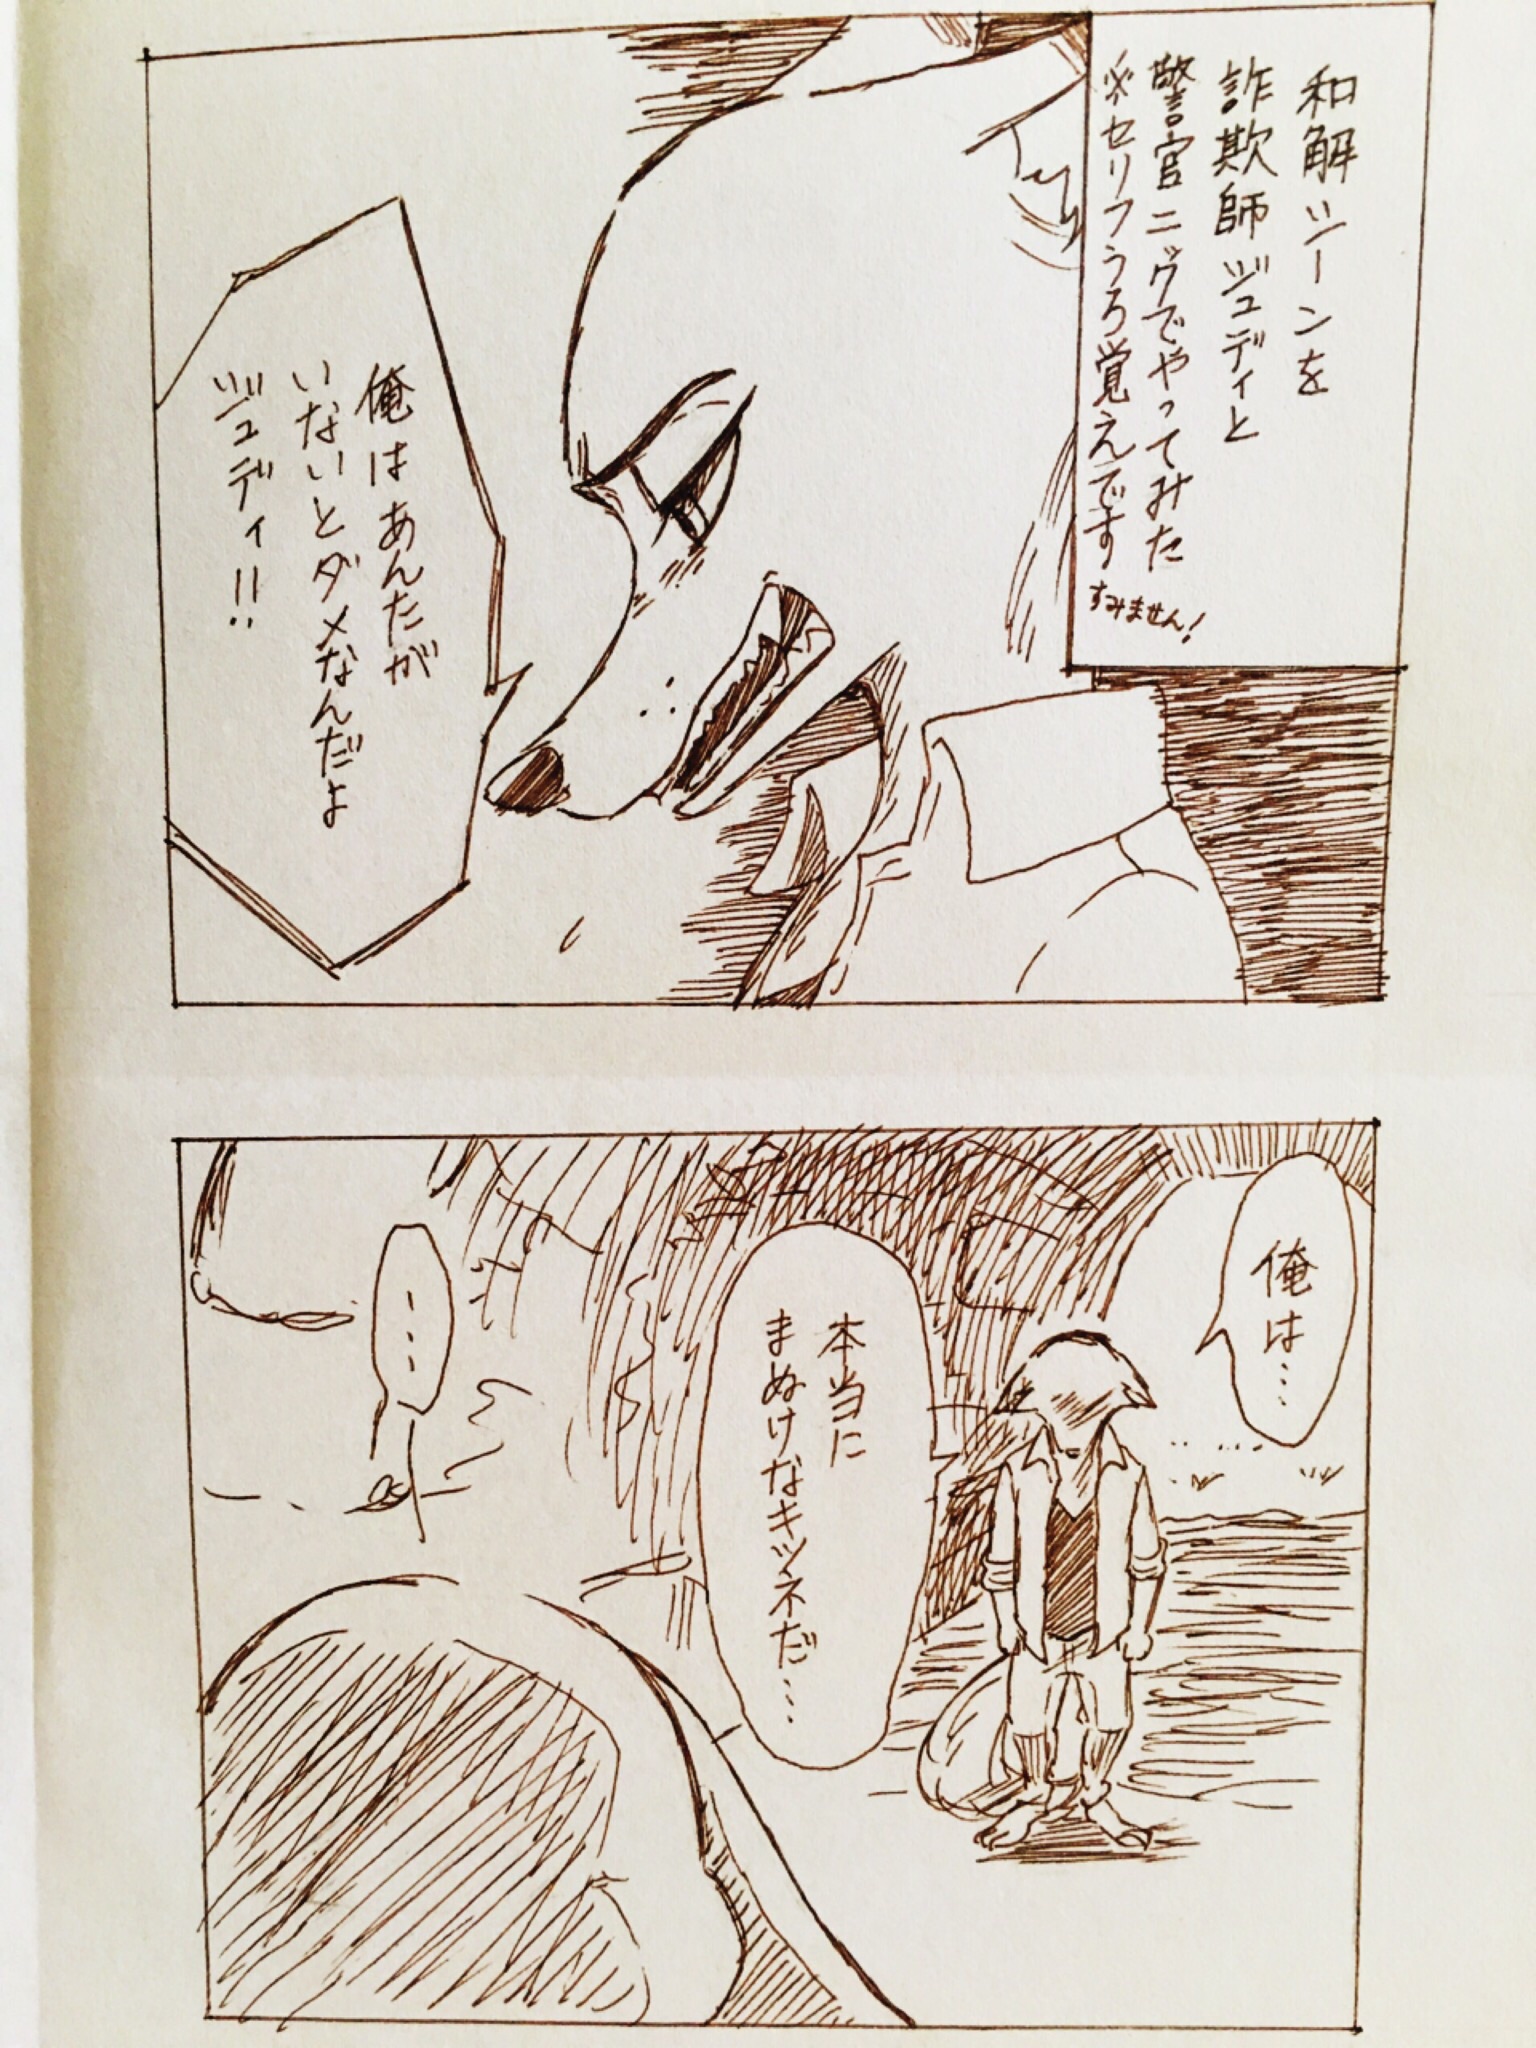 和解シーンを
詐欺師ジュディと
警官ニックでやってみた
※セリフうろ覚えです
すみません!
俺はあんたが
いないとダメなんだよ
ジュディ!!
俺は…
本当に
まぬけなキツネだ…
…